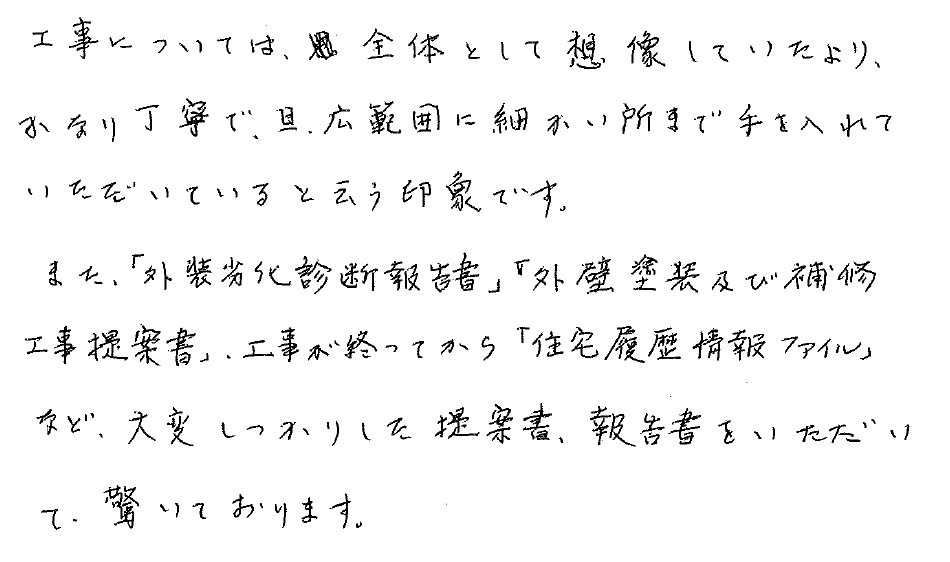 工事については、全体として想像していたより、
かなり丁寧で、且、広範囲に細かい所まで手を入れて
いただいていると云う印象です。
また、「外装劣化診断報告書」「外壁塗装及び補修
工事提案書」、工事が終ってから「住宅履歴情報ファイル」
など、大変しっかりした提案書、報告書をいただい
て、驚いております。